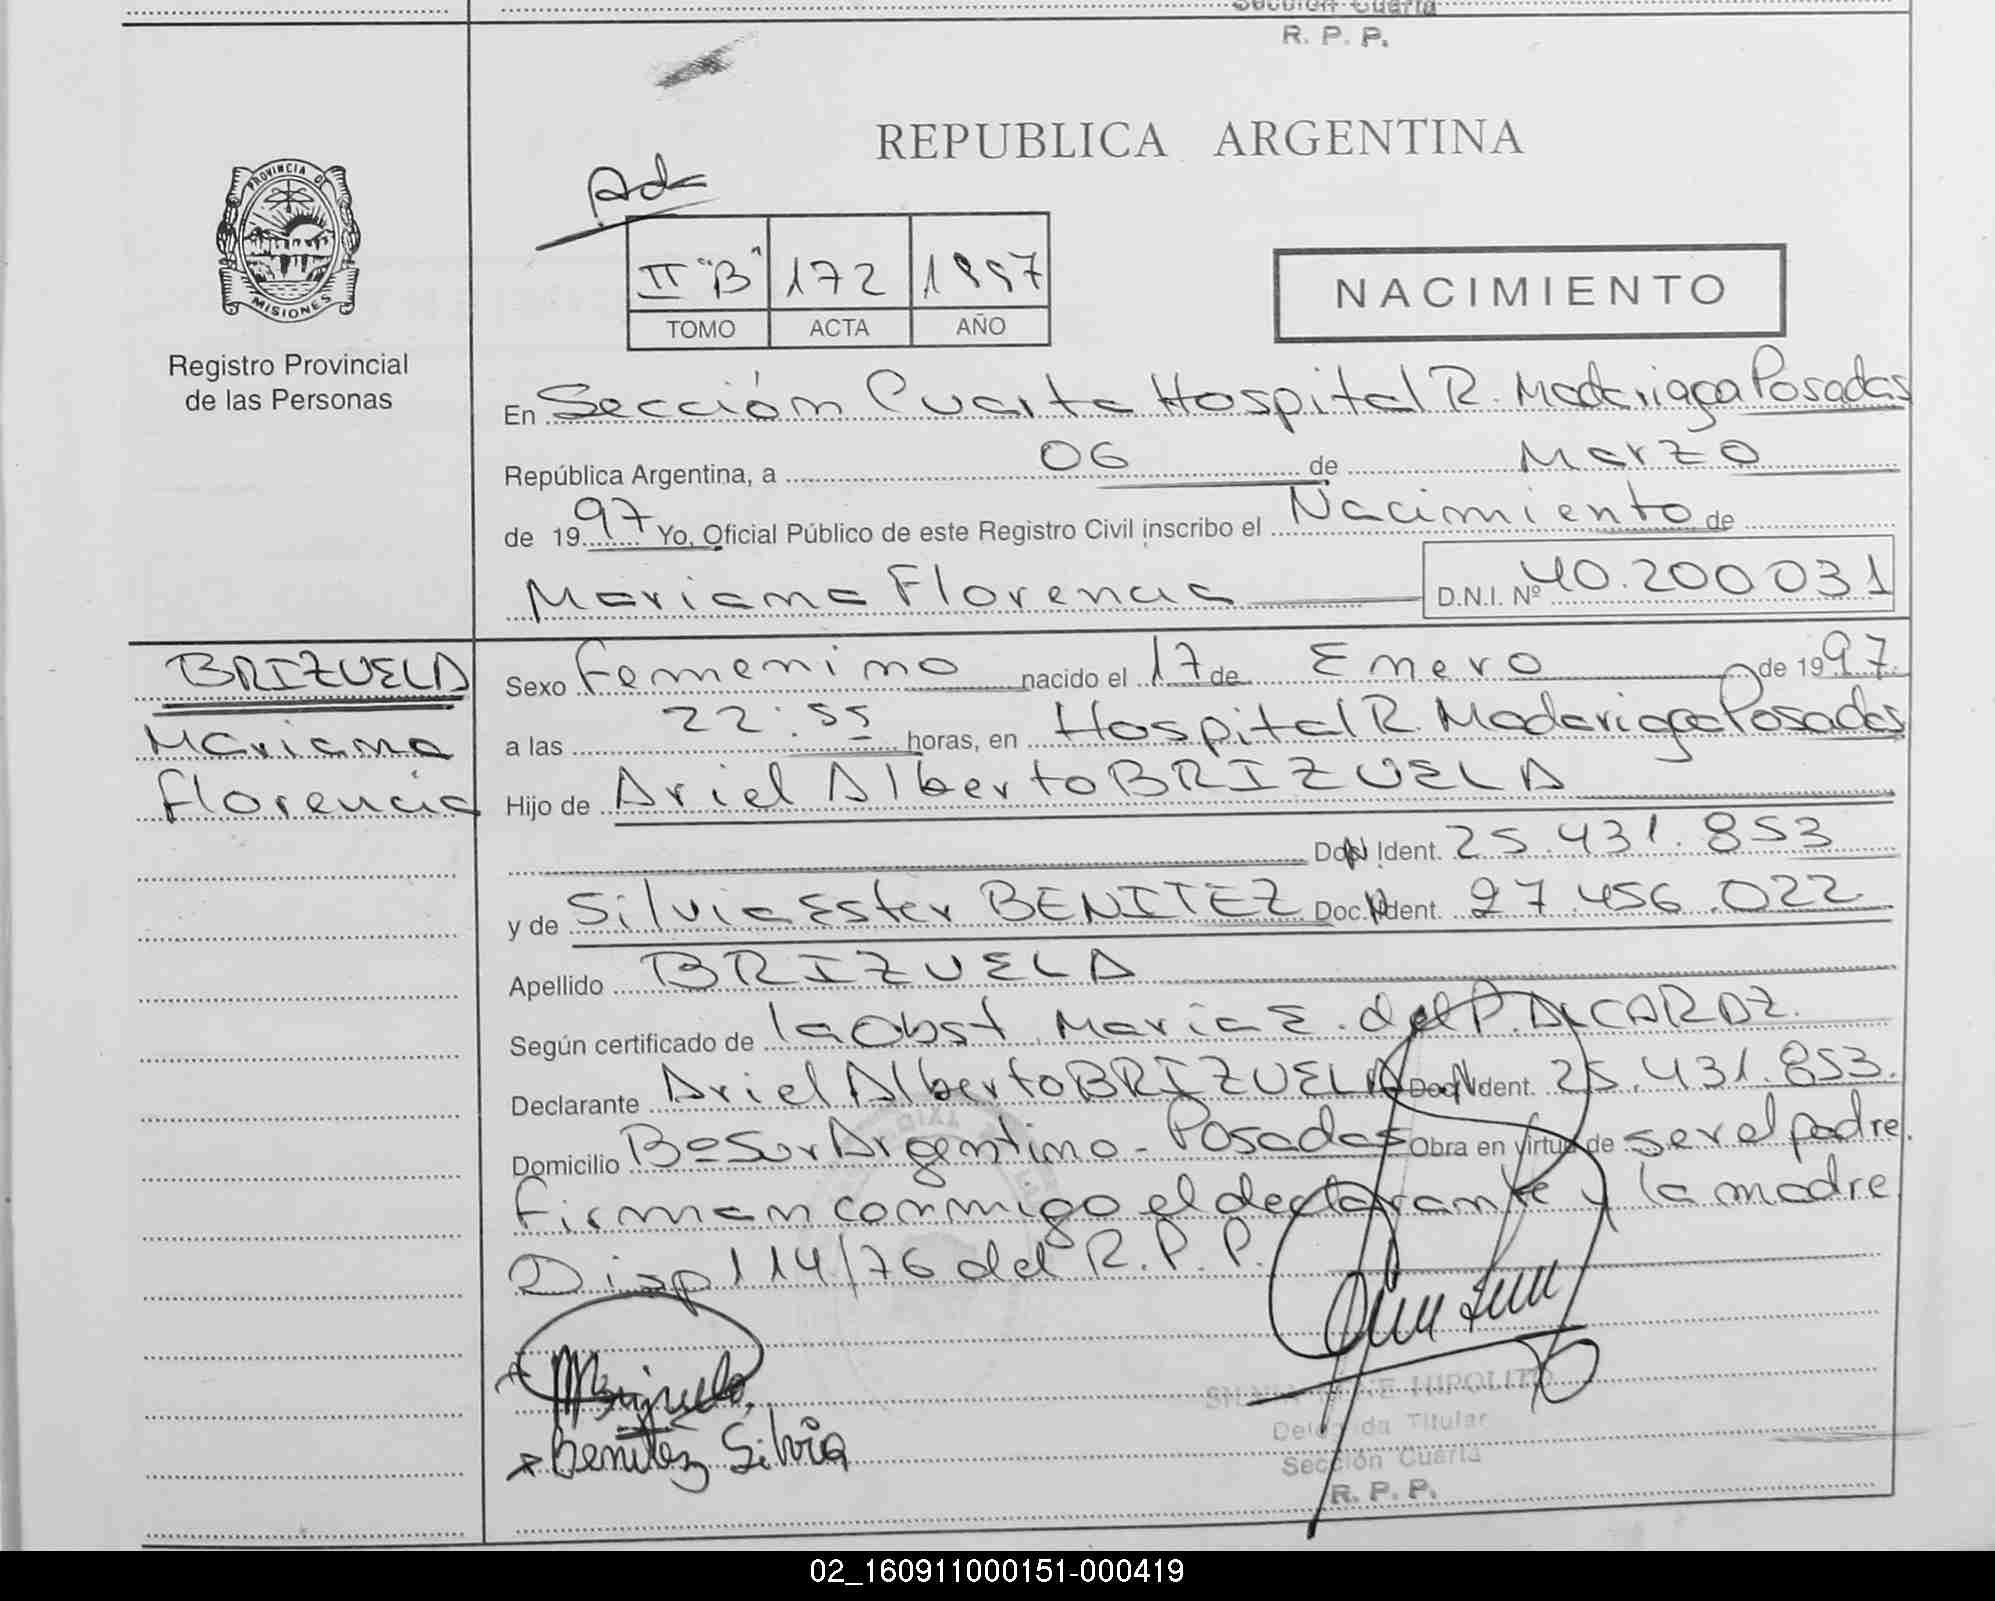 Sección Cuarta
R. P. P.
REPUBLICA ARGENTINA
PROVINCIA DE
MISIONES
Registro Provincial
de las Personas
II "B" 172 1997
TOMO ACTA AÑO
NACIMIENTO
En Sección Cuarta Hospital R. Madariaga Posadas
República Argentina, a 06 de Marzo
de 1997 Yo, Oficial Público de este Registro Civil inscribo el Nacimiento de
Mariana Florencia D.N.I. Nº 40.200031
BRIZUELA
Mariana
Florencia
Sexo Femenino nacido el 17 de Enero de 1997
a las 22:55 horas, en Hospital R. Madariaga Posadas
Hijo de Ariel Alberto BRIZUELA
Doc. Ident. 25.431.853
y de Silvia Ester BENITEZ Doc. Ident. 27.456.022
Apellido BRIZUELA
Según certificado de la Obst. Maria E. del P. ALCARAZ.
Declarante Ariel Alberto BRIZUELA Doc. Ident. 25.431.853.
Domicilio Bº Sur Argentino - Posadas Obra en virtud de ser el padre.
Firman conmigo el declarante y la madre
Disp 114/76 del R. P. P.
Benitez Silvia
HIPOLITO
Delegada Titular
Sección Cuarta
R. P. P.
02_160911000151-000419